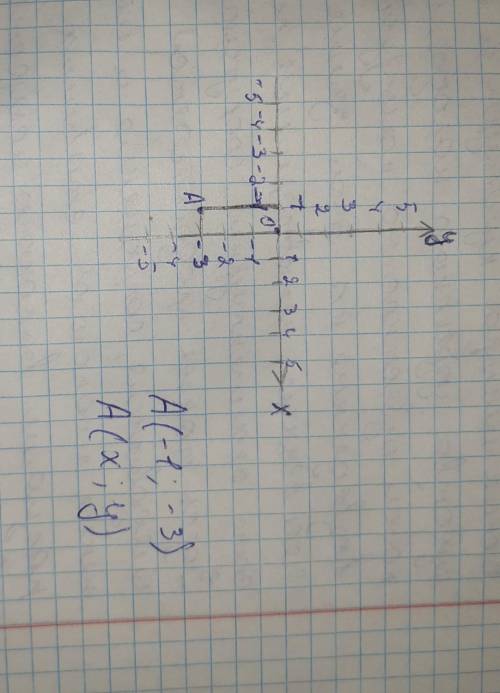 y
5
4
3
2
1
1 2 3 4 5 x
-5 -4 -3 -2 -1 0
-1
-2
A -3
-4
-5
A(-1; -3)
A(x; y)